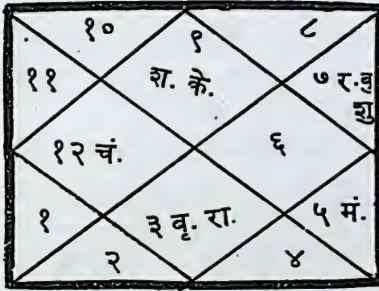 १० ९ ८
११ श. के. ७ र. बु
शु
१२ चं. ६
१ ३ बृ. रा. ५ मं.
२ ४